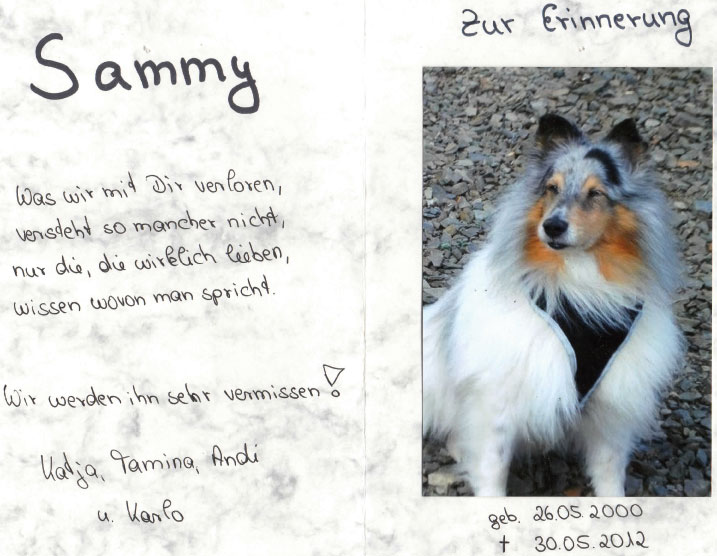 Sammy
Was wir mit Dir verloren,
versteht so mancher nicht,
nur die, die wirklich lieben,
wissen wovon man spricht.
Wir werden ihn sehr vermissen!
Katja, Tamina, Andi
u. Karlo
Zur Erinnerung
geb. 26.05.2000
† 30.05.2012